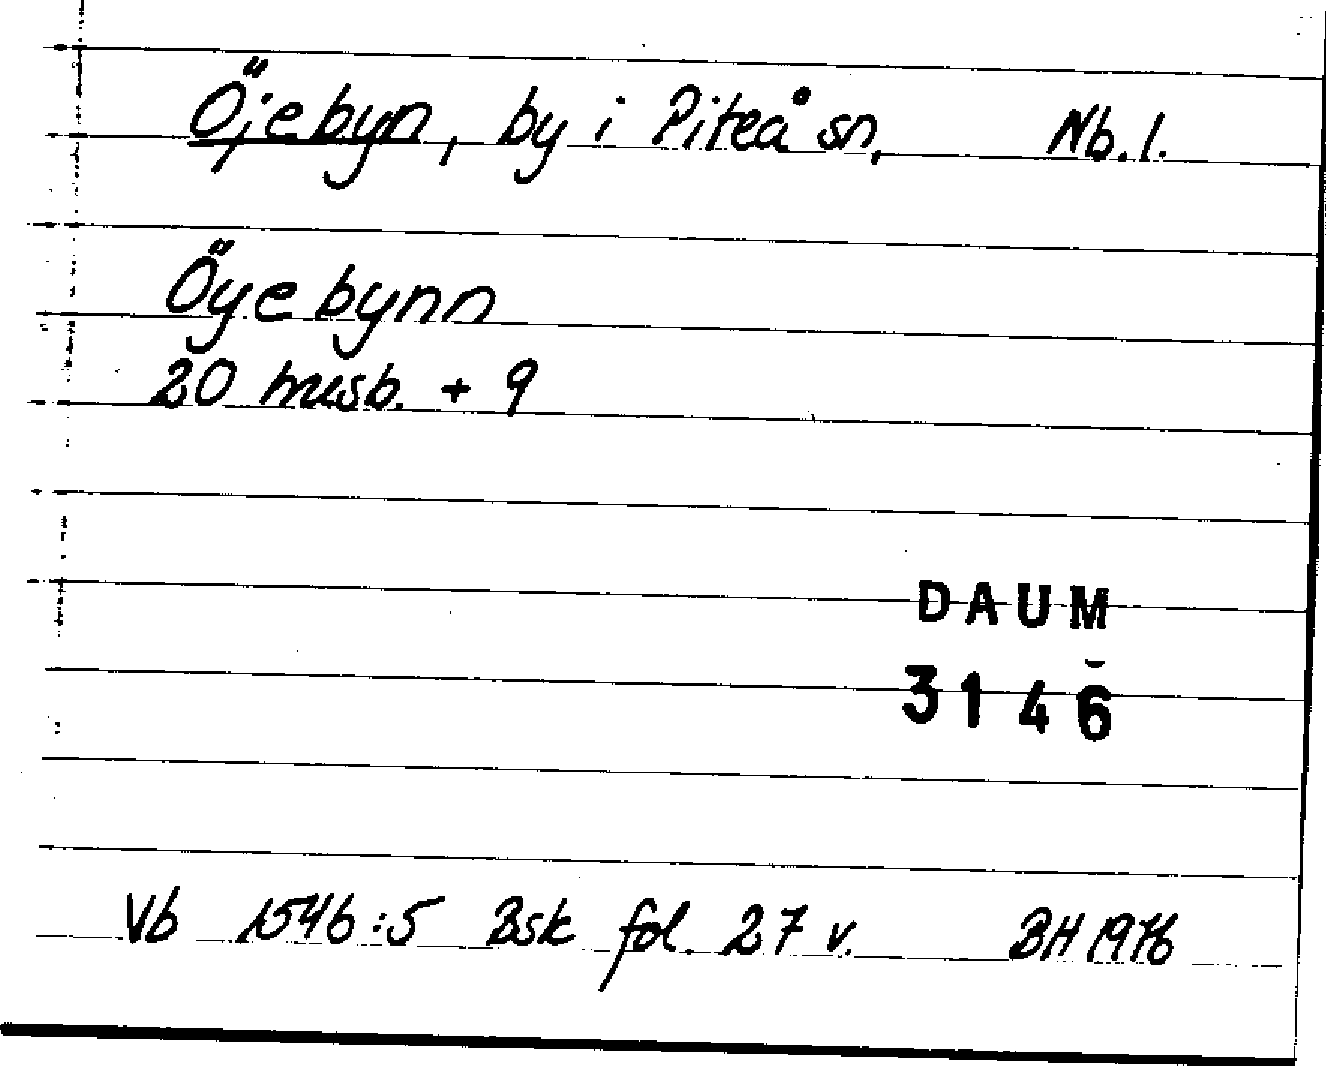 Öjebyn, by i Piteå sn, Nb. l.
Öyebynn
20 husb. + 9
DAUM
3146
Vb 1546:5 Bsk fol. 27 v. BH 1976